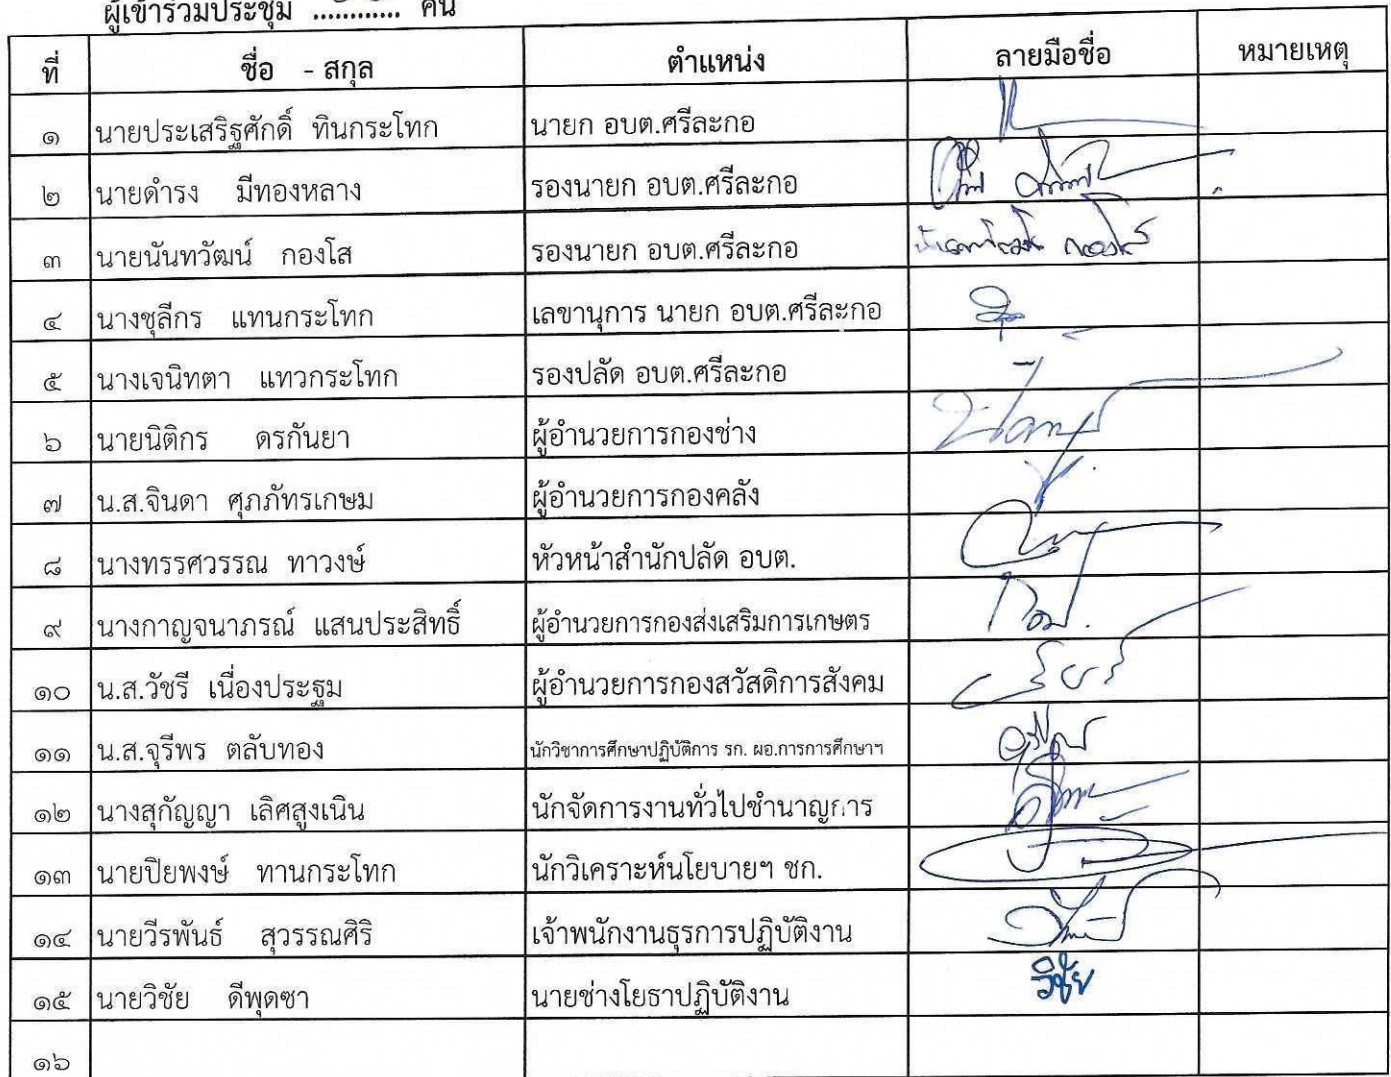 ผู้เข้าร่วมประชุม ............ คน
ที่ ชื่อ - สกุล ตำแหน่ง ลายมือชื่อ หมายเหตุ
๑ นายประเสริฐศักดิ์ ทินกระโทก นายก อบต.ศรีละกอ
๒ นายดำรง มีทองหลาง รองนายก อบต.ศรีละกอ
๓ นายนันทวัฒน์ กองโส รองนายก อบต.ศรีละกอ
๔ นางชุลีกร แทนกระโทก เลขานุการ นายก อบต.ศรีละกอ
๕ นางเจนิทตา แทวกระโทก รองปลัด อบต.ศรีละกอ
๖ นายนิติกร ดรกันยา ผู้อำนวยการกองช่าง
๗ น.ส.จินดา ศุภภัทรเกษม ผู้อำนวยการกองคลัง
๘ นางทรรศวรรณ ทาวงษ์ หัวหน้าสำนักปลัด อบต.
๙ นางกาญจนาภรณ์ แสนประสิทธิ์ ผู้อำนวยการกองส่งเสริมการเกษตร
๑๐ น.ส.วัชรี เนื่องประฐม ผู้อำนวยการกองสวัสดิการสังคม
๑๑ น.ส.จุรีพร ตลับทอง นักวิชาการศึกษาปฏิบัติการ รก. ผอ.การการศึกษาฯ
๑๒ นางสุกัญญา เลิศสูงเนิน นักจัดการงานทั่วไปชำนาญการ
๑๓ นายปิยพงษ์ ทานกระโทก นักวิเคราะห์นโยบายฯ ชก.
๑๔ นายวีรพันธ์ สุวรรณศิริ เจ้าพนักงานธุรการปฏิบัติงาน
๑๕ นายวิชัย ดีพุดซา นายช่างโยธาปฏิบัติงาน วิชัย
๑๖